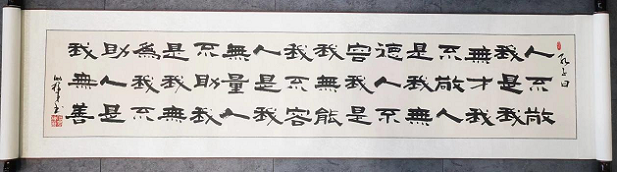 孔子曰
人不敬
我是我
無才我
不敬人
是我無
德人不
容我是
我無能
我不容
人是我
無量人
不助我
是我無
為我不
助人是
我無善